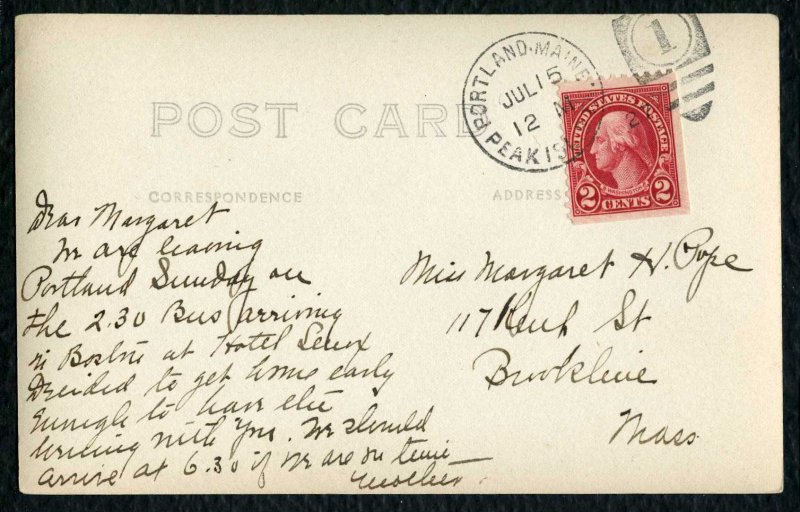 POST CARD
CORRESPONDENCE
ADDRESS
PORTLAND, MAINE.
JUL 15
12 M
PEAK IS
1
UNITED STATES POSTAGE
WASHINGTON
2 CENTS 2
Dear Margaret
We are leaving
Portland Sunday on
the 2.30 Bus arriving
in Boston at Hotel Lenox
Decided to get home early
enough to have the
evening with you. We should
arrive at 6.30 if we are on time
Mother
Miss Margaret H. Pope
117 Kent St
Brookline
Mass